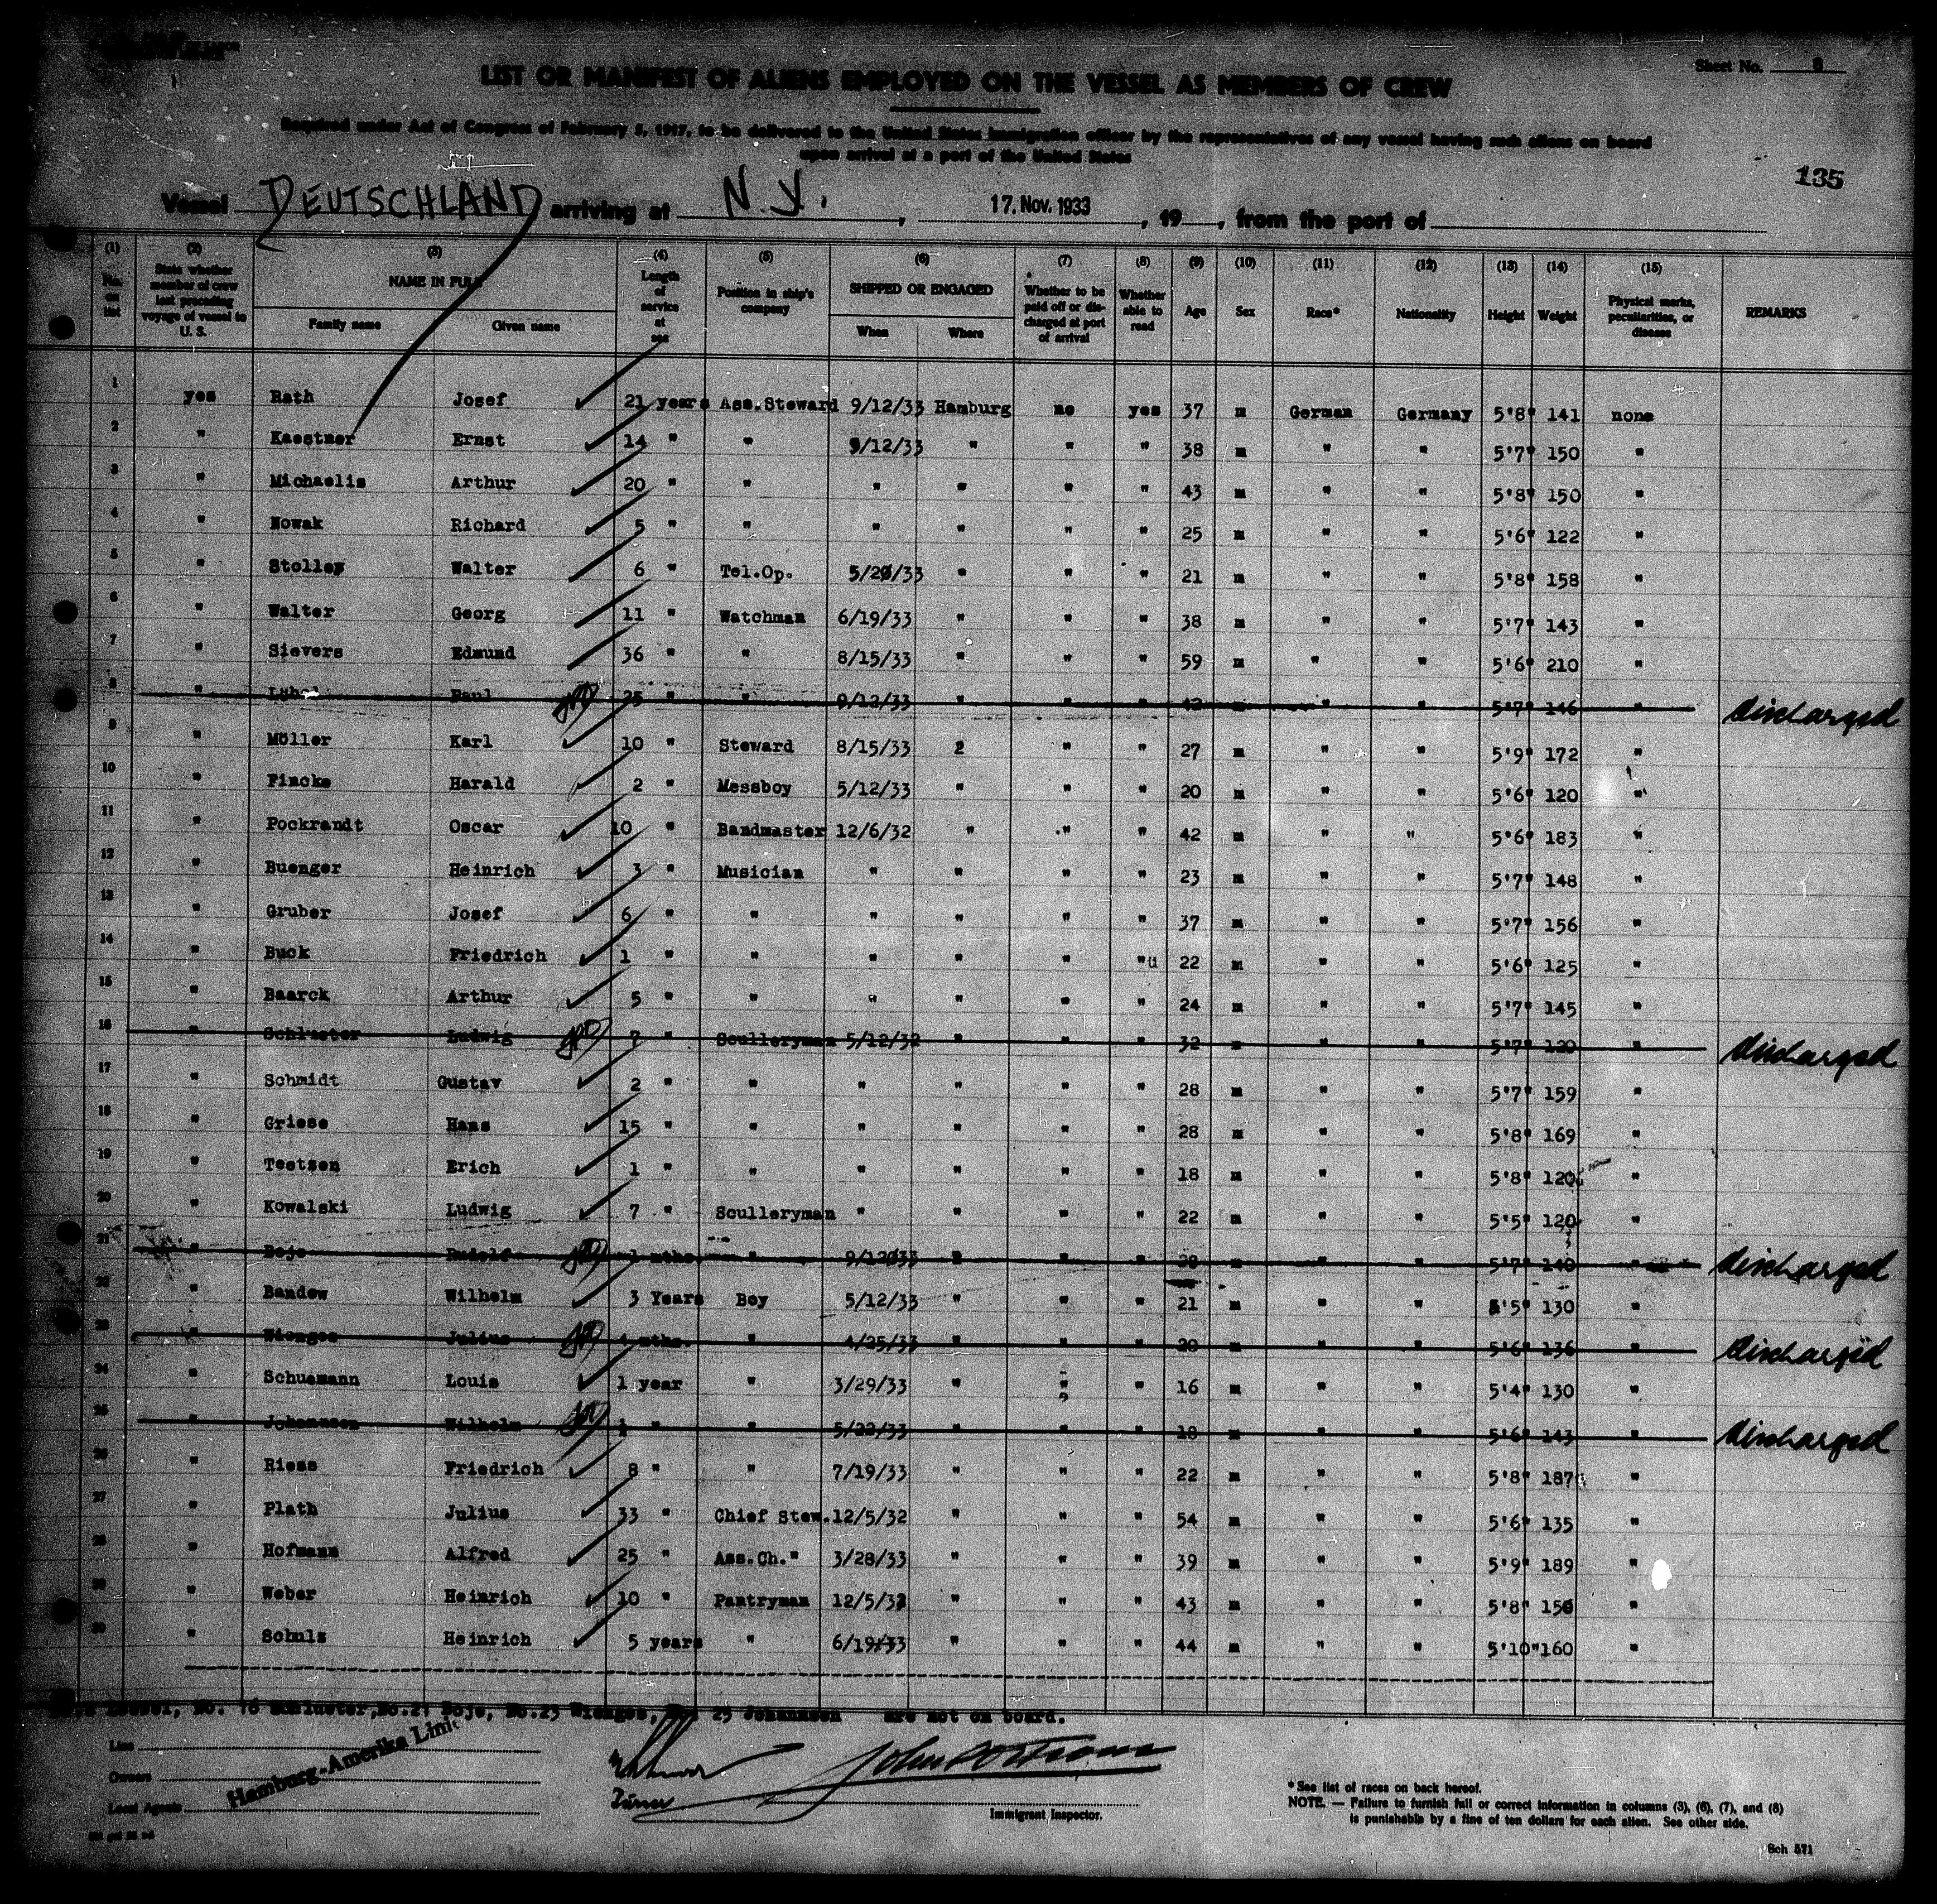 Sheet No. 8
LIST OR MANIFEST OF ALIENS EMPLOYED ON THE VESSEL AS MEMBERS OF CREW
Required under Act of Congress of February 5, 1917, to be delivered to the United States immigration officer by the representatives of any vessel having such aliens on board
upon arrival at a port of the United States
135
Vessel DEUTSCHLAND arriving at N.Y. , 17. Nov. 1933 , 19 , from the port of
(1) (2) (3) (4) (5) (6) (7) (8) (9) (10) (11) (12) (13) (14) (15)
No. on list State whether member of crew last preceding voyage of vessel to U. S. NAME IN FULL Family name Given name Length of service at sea Position in ship's company SHIPPED OR ENGAGED When Where * Whether to be paid off or discharged at port of arrival Whether able to read Age Sex Race* Nationality Height Weight Physical marks, peculiarities, or disease REMARKS
1 yes Rath Josef 21 years Ass.Steward 9/12/33 Hamburg no yes 37 m German Germany 5'8" 141 none
2 " Kaestner Ernst 14 " " 9/12/33 " " " 38 m " " 5'7" 150 "
3 " Michaelis Arthur 20 " " " " " " 43 m " " 5'8" 150 "
4 " Nowak Richard 5 " " " " " " 25 m " " 5'6" 122 "
5 " Stolley Walter 6 " Tel.Op. 5/20/33 " " " 21 m " " 5'8" 158 "
6 " Walter Georg 11 " Watchman 6/19/33 " " " 38 m " " 5'7" 143 "
7 " Sievers Edmund 36 " " 8/15/33 " " " 59 m " " 5'6" 210 "
8 " Paul 25 " " 9/12/33 " " " 42 m " " 5'7" 146 " discharged
9 " Möller Karl 10 " Steward 8/15/33 2 " " 27 m " " 5'9" 172 "
10 " Fincke Harald 2 " Messboy 5/12/33 " " " 20 m " " 5'6" 120 "
11 " Pockrandt Oscar 10 " Bandmaster 12/6/32 " " " 42 m " " 5'6" 183 "
12 " Buenger Heinrich 3 " Musician " " " " 23 m " " 5'7" 148 "
13 " Gruber Josef 6 " " " " " " 37 m " " 5'7" 156 "
14 " Buck Friedrich 1 " " " " " "ü 22 m " " 5'6" 125 "
15 " Baarck Arthur 5 " " " " " " 24 m " " 5'7" 145 "
16 " Schluster Ludwig 7 " Sculleryman 5/12/32 " " " 32 m " " 5'7" 120 " discharged
17 " Schmidt Gustav 2 " " " " " " 28 m " " 5'7" 159 "
18 " Griese Hans 15 " " " " " " 28 m " " 5'8" 169 "
19 " Teetzen Erich 1 " " " " " " 18 m " " 5'8" 120 "
20 " Kowalski Ludwig 7 " Sculleryman " " " " 22 m " " 5'5" 120 "
21 " Boje Rudolf 1 mths " " " " m " " 5'7" 140 " discharged
22 " Bandow Wilhelm 3 Years Boy 5/12/33 " " " 21 m " " 5'5" 130 "
23 " Wienges Julius mths. " 4/25/33 " " " 20 m " " 5'6" 136 " discharged
24 " Schuemann Louis 1 year " 3/29/33 " " " 16 m " " 5'4" 130 "
25 " Johannsen Wilhelm 1 " " 5/22/33 " " " 18 m " " 5'6" 143 " discharged
26 " Riess Friedrich 8 " " 7/19/33 " " " 22 m " " 5'8" 187 "
27 " Plath Julius 33 " Chief Stew. 12/5/32 " " " 54 m " " 5'6" 135 "
28 " Hofmann Alfred 25 " Ass.Ch." 3/28/33 " " " 39 m " " 5'9" 189 "
29 " Weber Heinrich 10 " Pantryman 12/5/32 " " " 43 m " " 5'8" 156 "
30 " Schulz Heinrich 5 years " 6/19/33 " " " 44 m " " 5'10" 160 "
No. 16 Schluster, No.21 Boje, No.23 Wienges, No. 25 Johannsen are not on board.
Line
Owners Hamburg-Amerika Linie
Local Agents
Immigrant Inspector.
* See list of races on back hereof.
NOTE. — Failure to furnish full or correct information in columns (3), (6), (7), and (8)
is punishable by a fine of ten dollars for each alien. See other side.
Sch 571